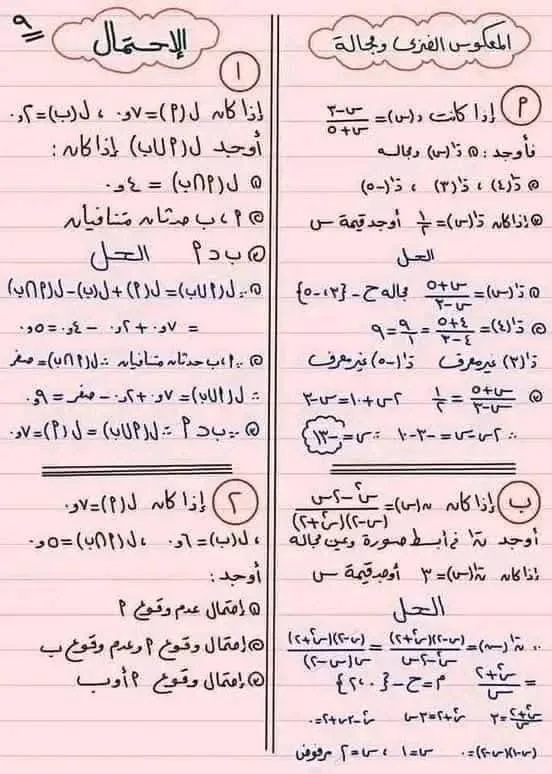 ٩
المعكوس الضربى ومجالة
أ إذا كانت د(س)= (س-٣)/(س+٥)
فأوجد: ① د⁻¹(س) ومجاله
② د⁻¹(٤) ، د⁻¹(٣) ، د⁻¹(-٥)
③ إذا كان د⁻¹(س)= ١/٢ أوجد قيمة س
الحل
① د⁻¹(س)= (س+٥)/(س-٣) مجاله ح - {٣، -٥}
② د⁻¹(٤)= (٤+٥)/(٤-٣) = ٩/١ = ٩
د⁻¹(٣) غير معرف د⁻¹(-٥) غير معرف
③ (س+٥)/(س-٣) = ١/٢ ٢س+١٠=س-٣
∴ ٢س-س=-٣-١٠ ∴ س=-١٣
ب إذا كان ن(س)= (س²-٢س)/((س-٢)(س²+٢))
أوجد ن⁻¹ فى أبسط صورة وعين مجاله
إذا كان ن⁻¹(س)= ٣ أوجد قيمة س
الحل
∵ ن⁻¹(س)= ((س-٢)(س²+٢))/(س²-٢س) = ((س-٢)(س²+٢))/(س(س-٢))
= (س²+٢)/س م=ح-{٠،٢}
(س²+٢)/س=٣ س²+٢=٣س س²-٣س+٢=٠
(س-١)(س-٢)=٠ س=١ ، س=٢ مرفوض
الإحتمال
١
إذا كان ل(أ)=٠٫٧ ، ل(ب)=٠٫٢
أوجد ل(أ∪ب) إذا كان:
① ل(أ∩ب) = ٠٫٤
② أ، ب حدثان متنافيان
③ ب⊂أ الحل
① ∵ ل(أ∪ب)= ل(أ)+ل(ب)-ل(أ∩ب)
= ٠٫٧+٠٫٢ - ٠٫٤ =٠٫٥
② ∵ أ، ب حدثان متنافيان ∴ ل(أ∩ب)= صفر
∴ ل(أ∪ب)= ٠٫٧+٠٫٢ - صفر = ٠٫٩
③ ∵ ب⊂أ ∴ ل(أ∪ب)= ل(أ)=٠٫٧
٢ إذا كان ل(أ)=٠٫٧
، ل(ب)=٠٫٦ ، ل(أ∩ب)=٠٫٥
أوجد:
① إحتمال عدم وقوع أ
② إحتمال وقوع أ وعدم وقوع ب
③ إحتمال وقوع أ أو ب